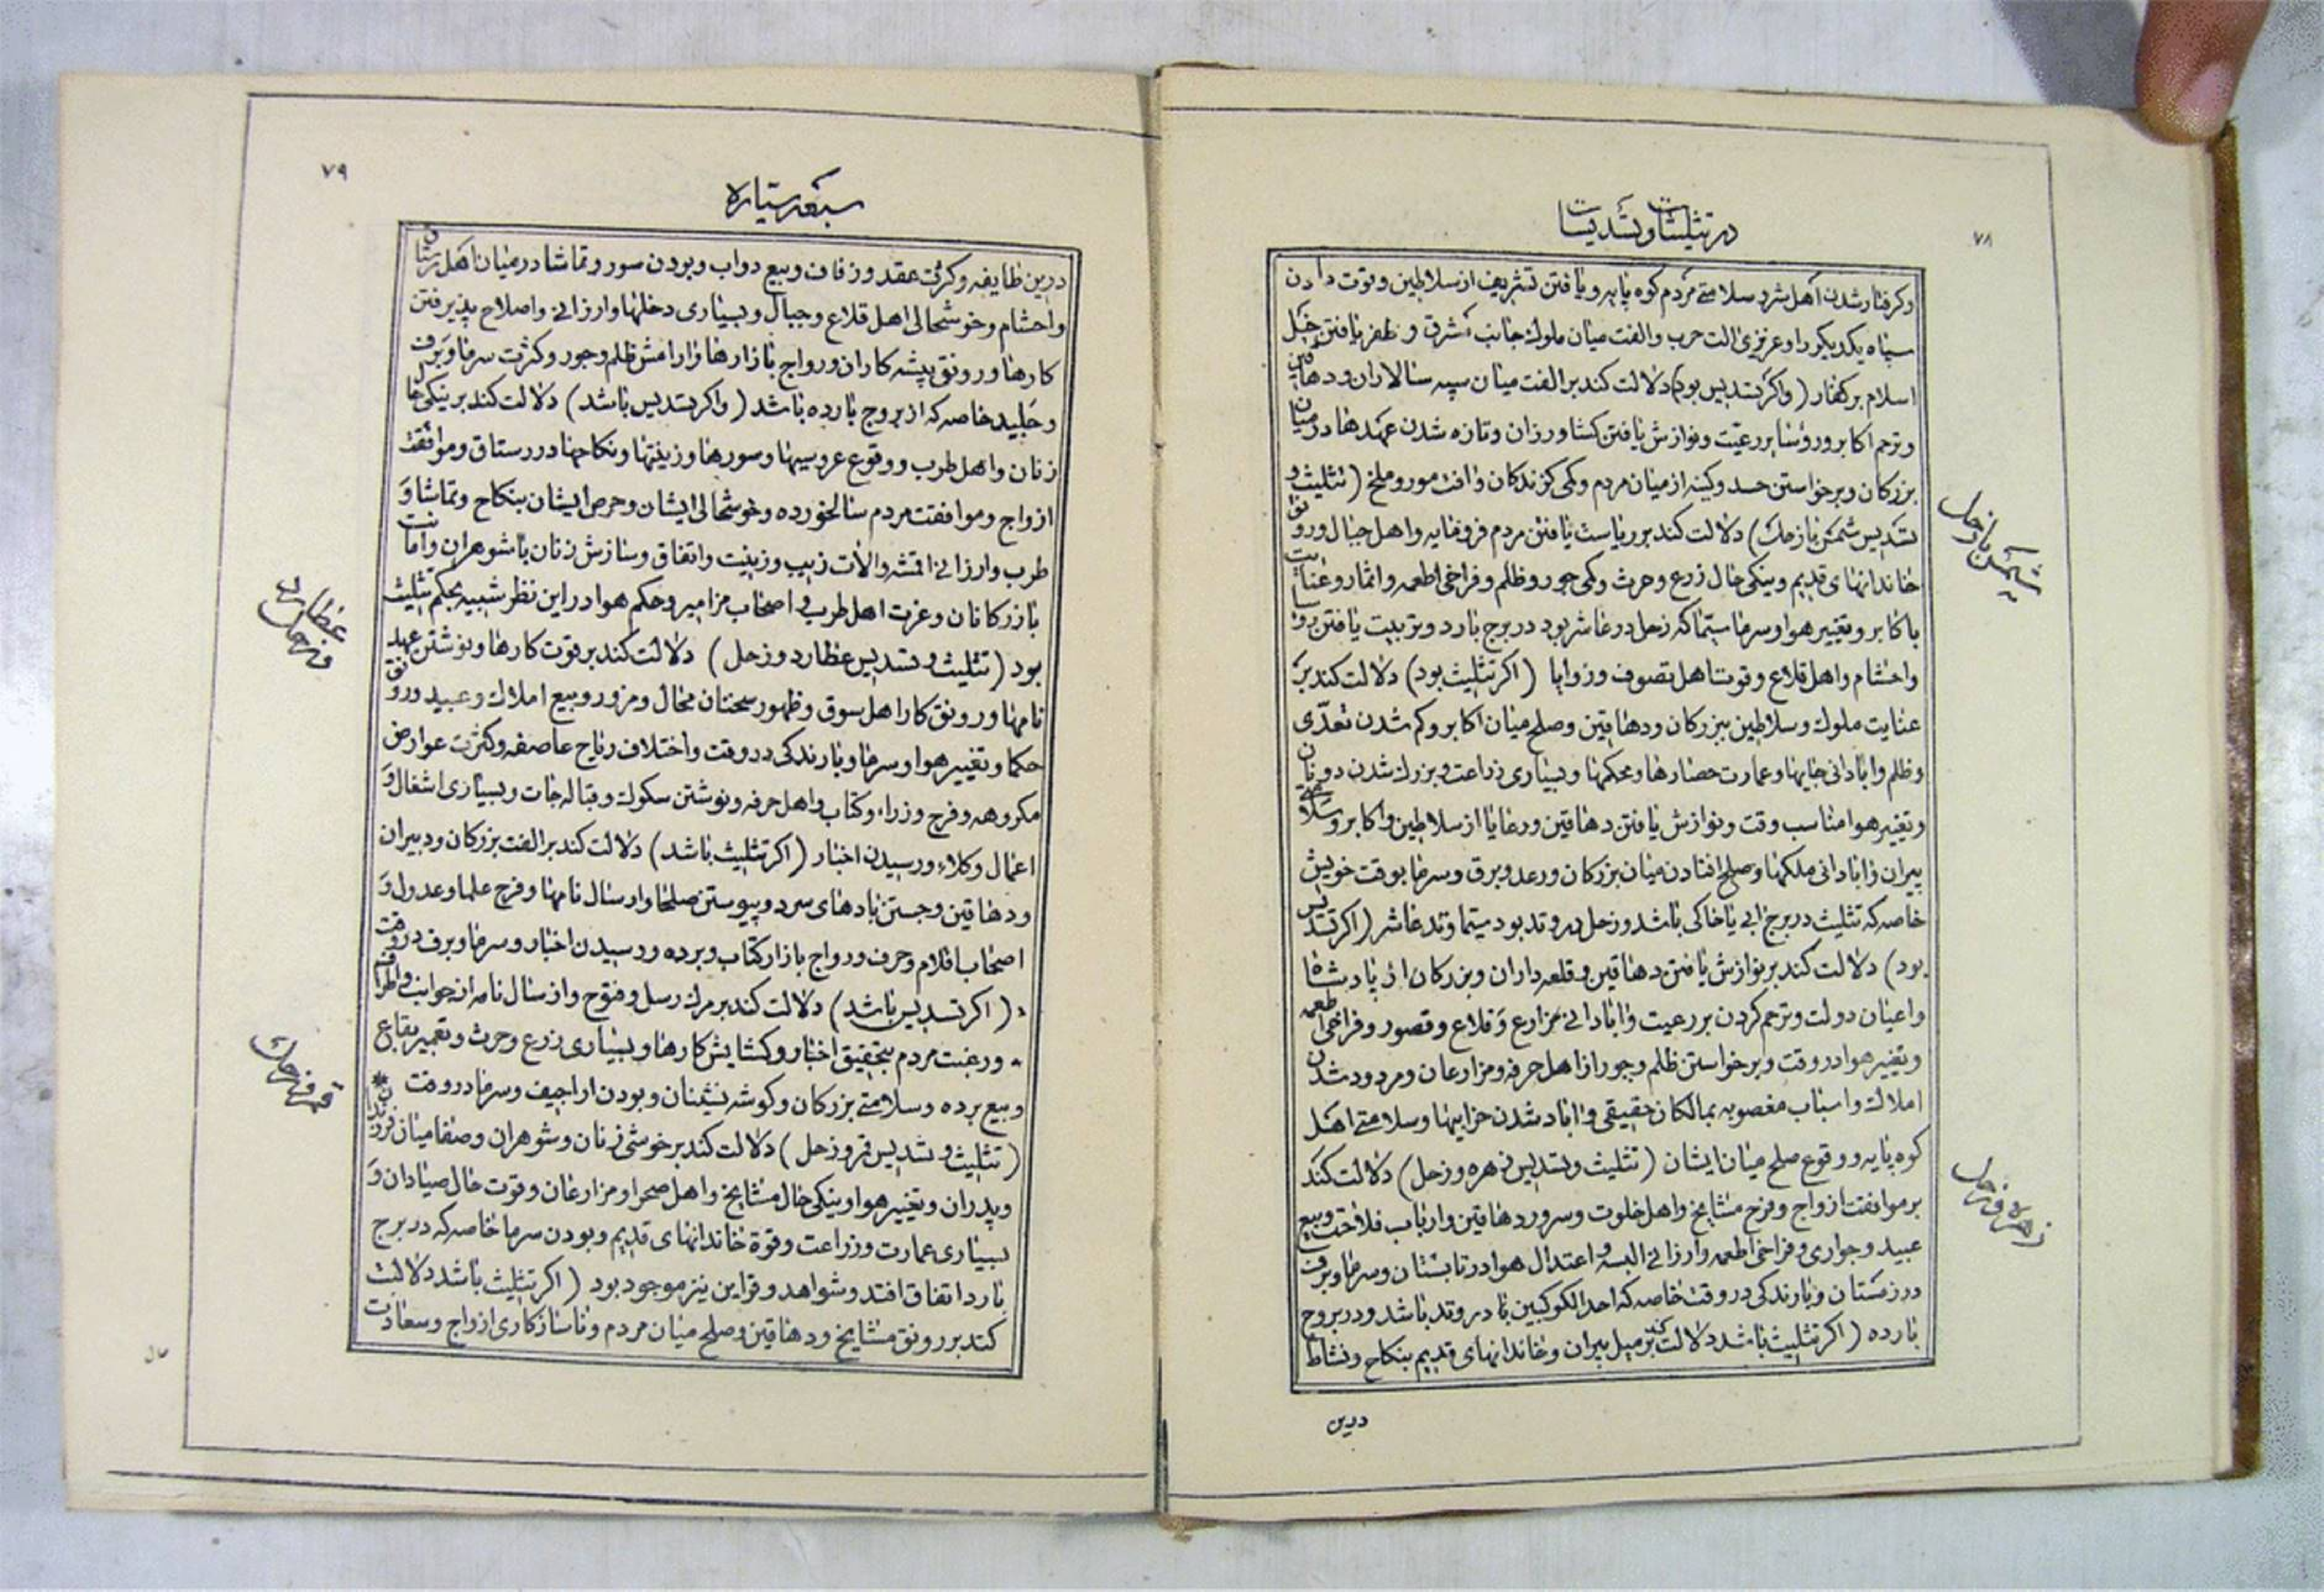 ۷۸
در تثلیثات و تسدیسات
و کرفتار شدن اهل شر و سلامتی مردم کوه پایه و یافتن تشریف از سلاطین و قوت دادن
سپاه یکدیکر را و عزیزی الت حرب و الفت میان ملوك جانب مشرق و ظفر یافتن خیل
اسلام بر کفار (و اکر تسدیس بود) دلالت کند بر الفت میان سپه سالاران و دهاقین
و ترحم اکابر و رؤسا بر رعیت و نوازش یافتن کشاورزان و تازه شدن عهدها در میان
بزرکان و برخواستن حسد و کینه از میان مردم و کمی کزندکان و افت مور و ملخ (تثلیث و
تسدیس شمس با زحل) دلالت کند بر ریاست یافتن مردم فرومایه و اهل جبال و رونق
خاندانهای قدیم و نیکی حال زرع و حرث و کمی جور و ظلم و فراخی اطعمه و اثمار و عنایت
با کابر و تغییر هوا و سرما سیما که زحل در عاشر بود در برج بارد و تربیت یافتن رؤسا
و احشام و اهل قلاع و قوت اهل تصوف و زوایا (اکر تثلیث بود) دلالت کند بر
عنایت ملوك و سلاطین ببزرکان و دهاقین و صلح میان اکابر و کم شدن تعدّی
و ظلم و ابادانی جایها و عمارت حصارها و محکمها و بسیاری زراعت و بزرك شدن دونان
و تغییر هوا مناسب وقت و نوازش یافتن دهاقین و رعایا از سلاطین و اکابر و سلامتی
پیران و ابادانی ملکها و صلح افتادن میان بزرکان و رعد و برق و سرما بوقت خویش
خاصه که تثلیث در برج ابی یا خاکی باشد و زحل در وتد بود سیما وتد عاشر (اکر تسدیس
بود) دلالت کند بر نوازش یافتن دهاقین و قلعه داران و بزرکان از پادشاه
و اعیان دولت و ترحم کردن بر رعیت و ابادانی مزارع و قلاع و قصور و فراخی اطعمه
و تغییر هوا در وقت و برخواستن ظلم و جور از اهل حرفه و مزارعان و مردود شدن
املاك و اسباب مغصوبه بمالکان حقیقی و اباد شدن خرابیها و سلامتی اهل
کوه پایه و وقوع صلح میان ایشان (تثلیث و تسدیس زهره و زحل) دلالت کند
بر موافقت ازواج و فرح مشایخ و اهل خلوت و سرور دهاقین و ارباب فلاحت و بیع
عبید و جواری و فراخی اطعمه و ارزانی البسه و اعتدال هوا در تابستان و سرما و برف
در زمستان و بارندکی در وقت خاصه که احد الکوکبین در وتد باشد و در بروج
بارده (اکر تثلیث باشد دلالت کند بر میل پیران و خاندانهای قدیم بنکاح و نشاط
درین
شمس با زحل
زهره و زحل
۷۹
سبعه سیاره
درین طایفه و کرمی عقد و زفاف و بیع دواب و بودن سور و تماشا در میان اهل رستاق
و احشام و خوشحالی اهل قلاع و جبال و بسیاری دخلها و ارزانی و اصلاح پذیرفتن
کارها و رونق پیشه کاران و رواج بازارها و ارامش ظلم و جور و کثرت سرما و برف
و جلید خاصه که از بروج بارده باشد (و اکر تسدیس باشد) دلالت کند بر نیکی حال
زنان و اهل طرب و وقوع عروسیها و سورها و زینتها و نکاحها در رستاق و موافقت
ازواج و موافقت مردم سالخورده و خوشحالی ایشان و حرص ایشان بنکاح و تماشا و
طرب و ارزانی اقمشه و الات زیب و زینت و اتفاق و سازش زنان با شوهران و امانت
بازرکانان و عزت اهل طرب و اصحاب مزامیر و حکم هوا در این نظر شبیه بحکم تثلیث
بود (تثلیث و تسدیس عطارد و زحل) دلالت کند بر قوت کارها و نوشتن عهد
نامها و رونق کار اهل سوق و ظهور سخنان محال و مزور و بیع املاك و عبید و رونق
حکما و تغییر هوا و سرما و بارندکی در وقت و اختلاف ریاح عاصفه و کثرت عوارض
مکروهه و فرح وزراء و کتاب و اهل حرفه و نوشتن سکوك و قباله جات و بسیاری اشغال و
اعمال وکلاء و رسیدن اخبار (اکر تثلیث باشد) دلالت کند بر الفت بزرکان و دبیران
و دهاقین و جستن بادهای سرد و پیوستن صلحا و ارسال نامها و فرح علما و عدول و
اصحاب اقلام و حرف و رواج بازار کتاب و برده و رسیدن اخبار و سرما و برف در وقت
(اکر تسدیس باشد) دلالت کند بر مرك رسل و فتوح و ارسال نامه از جوانب و اطراف
و رغبت مردم بتحقیق اخبار و کشایش کارها و بسیاری زرع و حرث و تعمیر بقاع
و بیع برده و سلامتی بزرکان و کوشه نشینان و بودن اراجیف و سرما در وقت *
(تثلیث و تسدیس قمر و زحل) دلالت کند بر خوشی زنان و شوهران و صفا میان فرزندان
و پدران و تغییر هوا و نیکی حال مشایخ و اهل صحرا و مزارعان و قوت حال صیادان و
بسیاری عمارت و زراعت و قوة خاندانهای قدیم و بودن سرما خاصه که در برج
بارد اتفاق افتد و شواهد و قراین نیز موجود بود (اکر تثلیث باشد دلالت
کند بر رونق مشایخ و دهاقین و صلح میان مردم و ناسازکاری ازواج و سعادت
عطارد
و زحل
قمر و زحل
حال